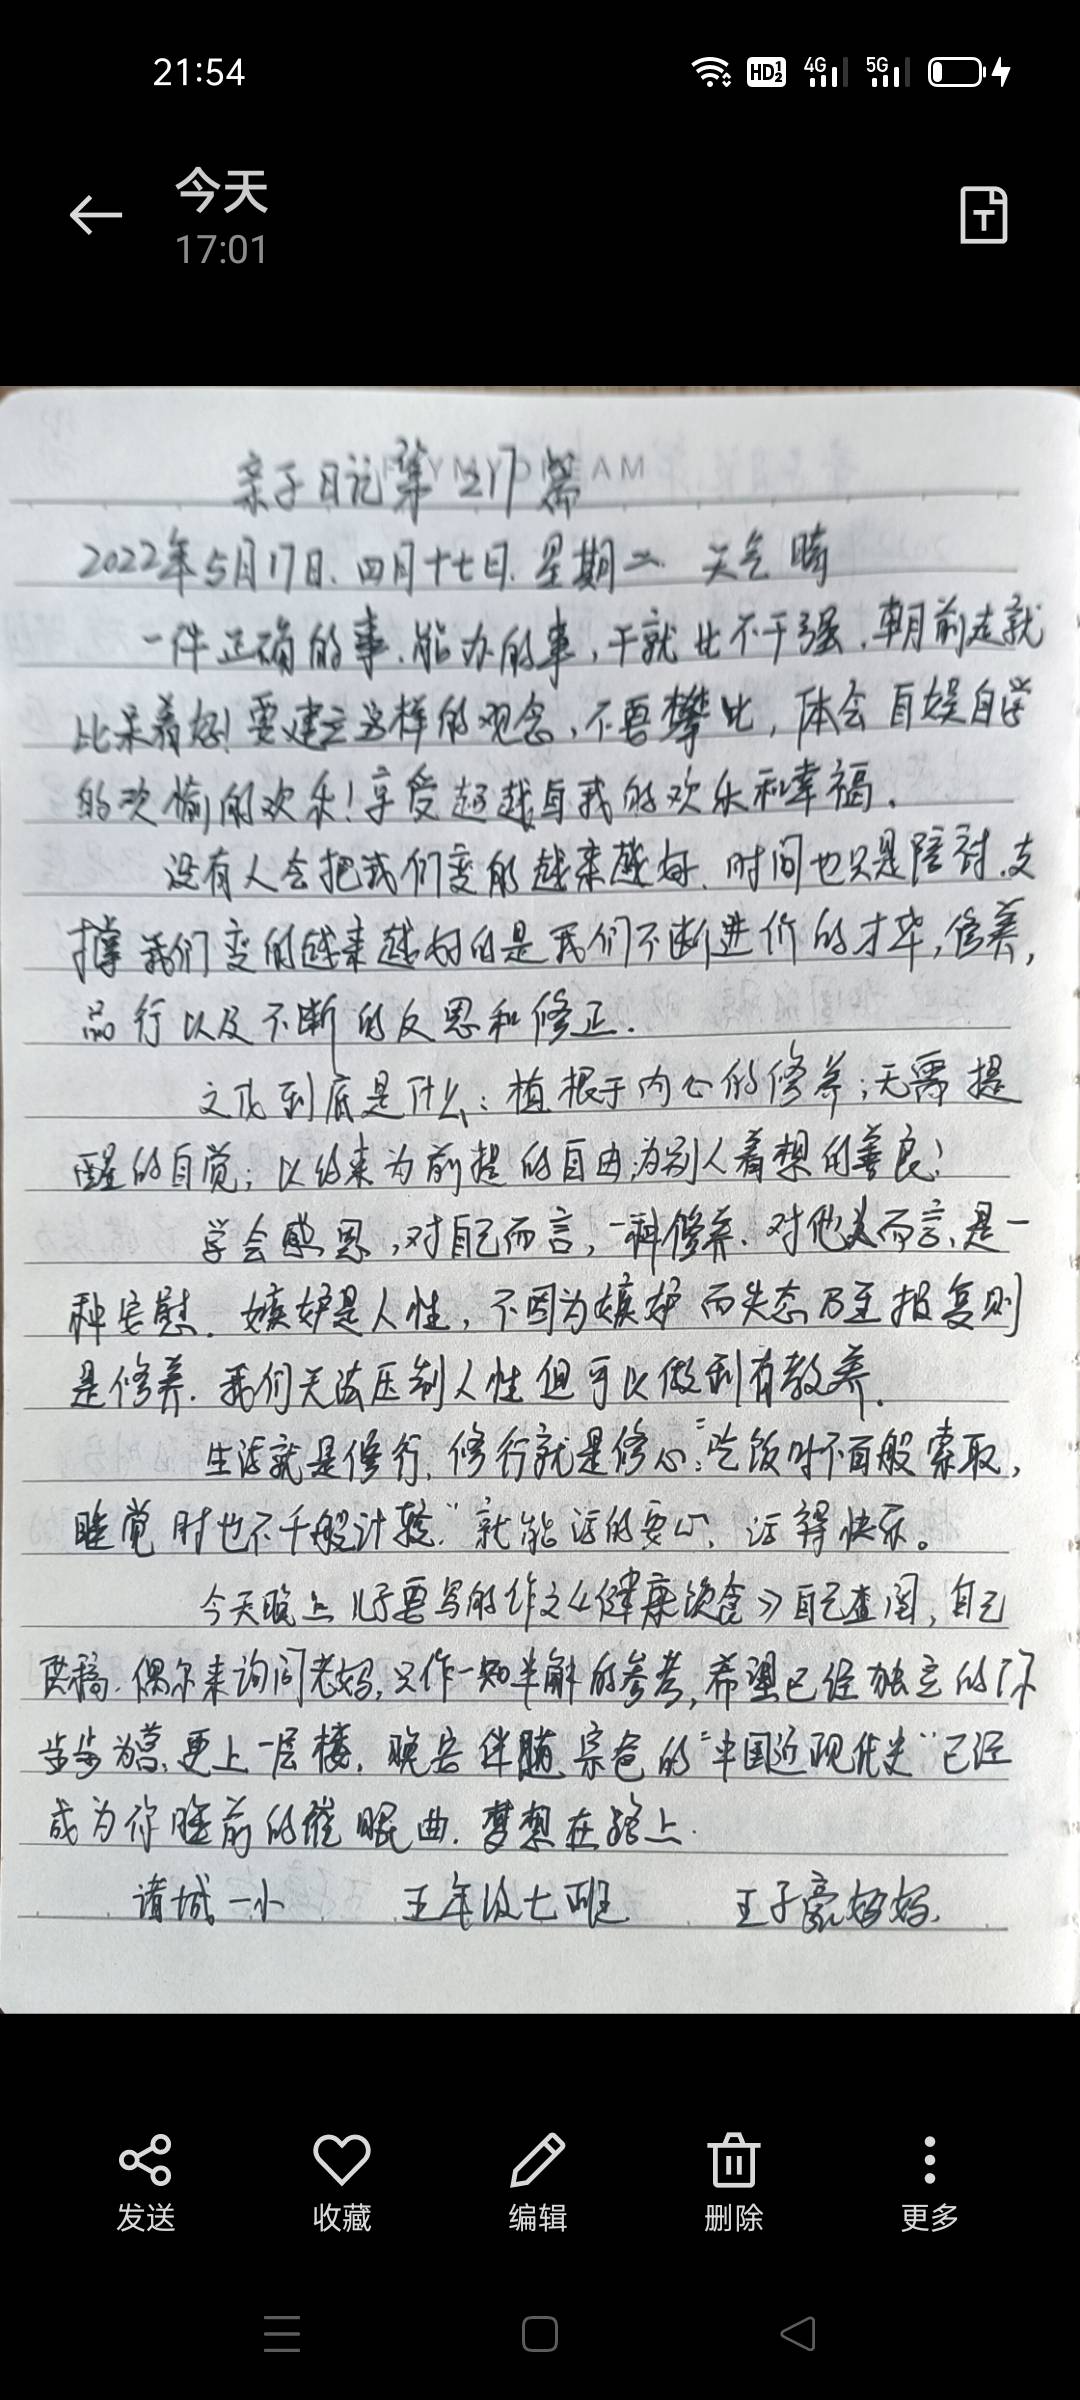 21:54
HD 1 2 4G 5G
今天
17:01
亲子日记第217篇
2022年5月17日.四月十七日.星期二. 天气晴
一件正确的事.能办的事,干就比不干强.朝前走就
比呆着好!要建立这样的观念,不要攀比,体会自娱自学
的欢愉的欢乐!享受超越自我的欢乐和幸福.
没有人会把我们变的越来越好.时间也只是陪衬.支
撑我们变的越来越好的是我们不断进价的才华,修养,
品行以及不断的反思和修正.
文化到底是什么:植根于内心的修养;无需提
醒的自觉;以约束为前提的自由;为别人着想的善良!
学会感恩,对自己而言,一种修养.对他人而言,是一
种安慰.嫉妒是人性,不因为嫉妒而失态乃至报复则
是修养.我们无法压制人性但可以做到有教养.
生活就是修行,修行就是修心:"吃饭时不百般索取,
睡觉时也不千般计较."就能活的安心,活得快乐。
今天晚上儿子要写的作文《健康饮食》自己查阅,自己
起稿.偶尔来询问老妈,只作一知半解的参考,希望已经独立的你
步步为营,更上一层楼.晚安伴随宗爸的"中国近现代史"已经
成为你睡前的催眠曲.梦想在路上.
诸城一小 五年级七班 王子豪妈妈.
发送 收藏 编辑 删除 更多